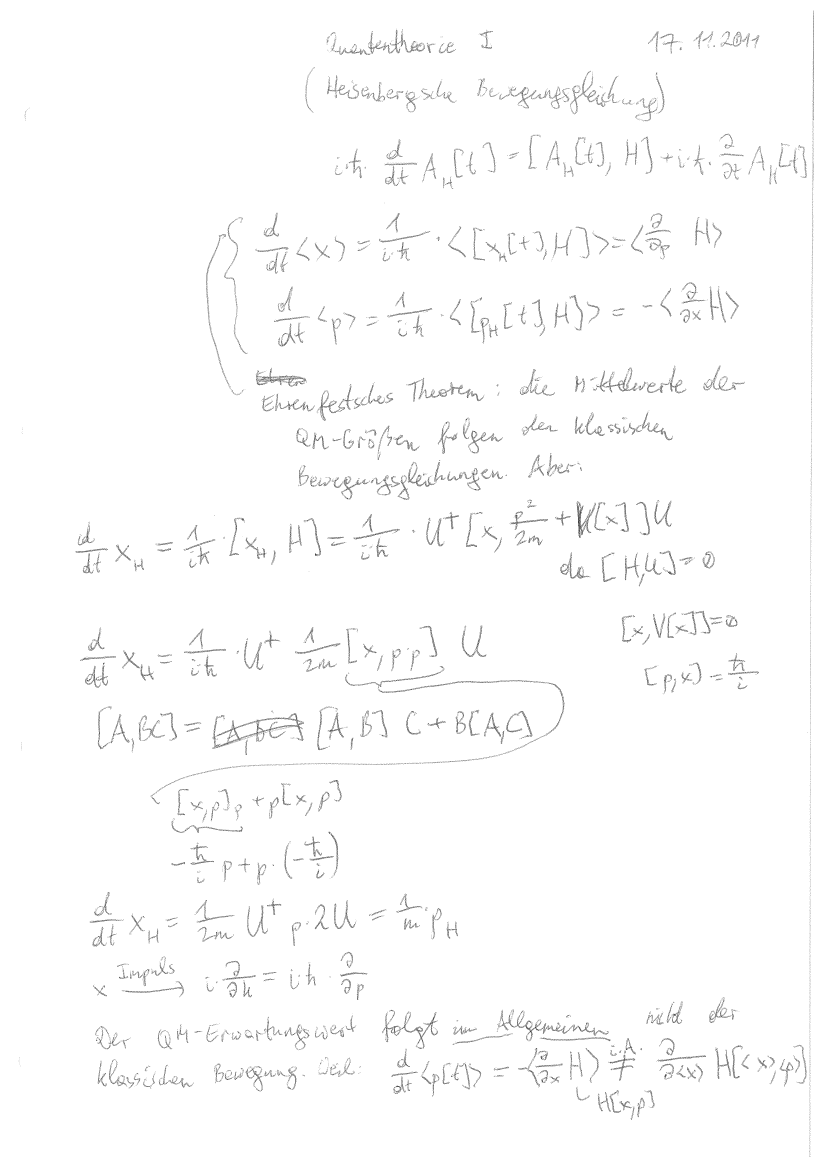 Quantentheorie I 17.11.2011
(Heisenbergsche Bewegungsgleichung)
i·ħ· d/dt A_H[t] = [A_H[t], H] + i·ħ· ∂/∂t A_H[t]
d/dt <x> = 1/(i·ħ) · <[x_H[t], H]> = <∂/∂p H>
d/dt <p> = 1/(i·ħ) · <[p_H[t], H]> = -<∂/∂x H>
Ehrenfestsches Theorem: die Mittelwerte der
QM-Größen folgen den klassischen
Bewegungsgleichungen. Aber:
d/dt x_H = 1/(iħ) · [x_H, H] = 1/(iħ) · U† [x, p²/2m + V[x]] U
da [H,U]=0
[x,V[x]]=0
d/dt x_H = 1/(iħ) · U† 1/2m [x, p·p] U
[p,x] = ħ/i
[A,BC] = [A,B] C + B[A,C]
[x,p]p + p[x,p]
-ħ/i p + p·(-ħ/i)
d/dt x_H = 1/2m U† p·2U = 1/m · p_H
x Impuls→ i·∂/∂k = i·ħ · ∂/∂p
Der QM-Erwartungswert folgt im Allgemeinen nicht der
klassischen Bewegung. : d/dt <p[t]> = -<∂/∂x H> ≠ i.A. ∂/∂<x> H[<x>,<p>]
H[x,p]